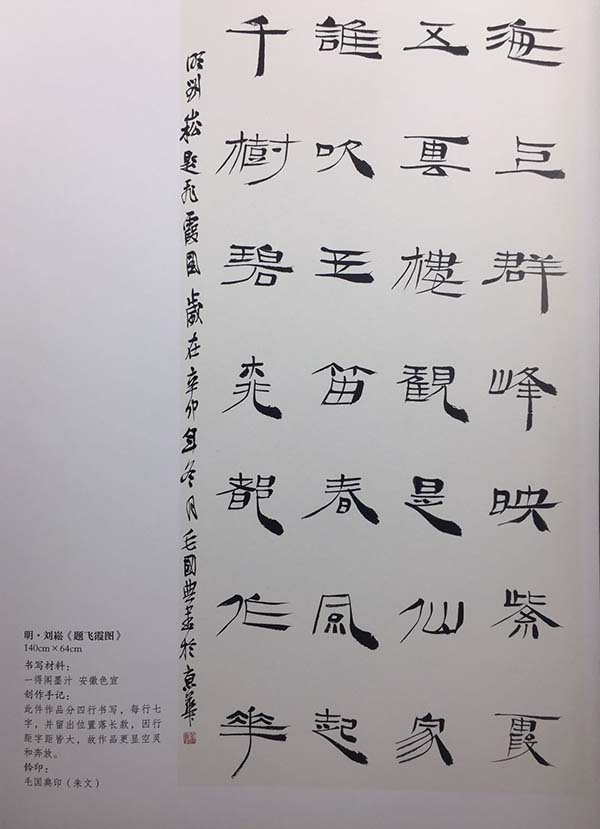 海上群峰映紫霞
五雲樓觀是仙家
誰吹玉笛春風起
千樹碧桃都作花
明劉崧題飛霞圖歲在辛卯年冬月毛國典書於京華
明·刘崧《题飞霞图》
140cm×64cm
书写材料：
一得阁墨汁 安徽色宣
创作手记：
此件作品分四行书写，每行七
字，并留出位置落长款，因行
距字距皆大，故作品更显空灵
和奔放。
钤印：
毛国典印（朱文）